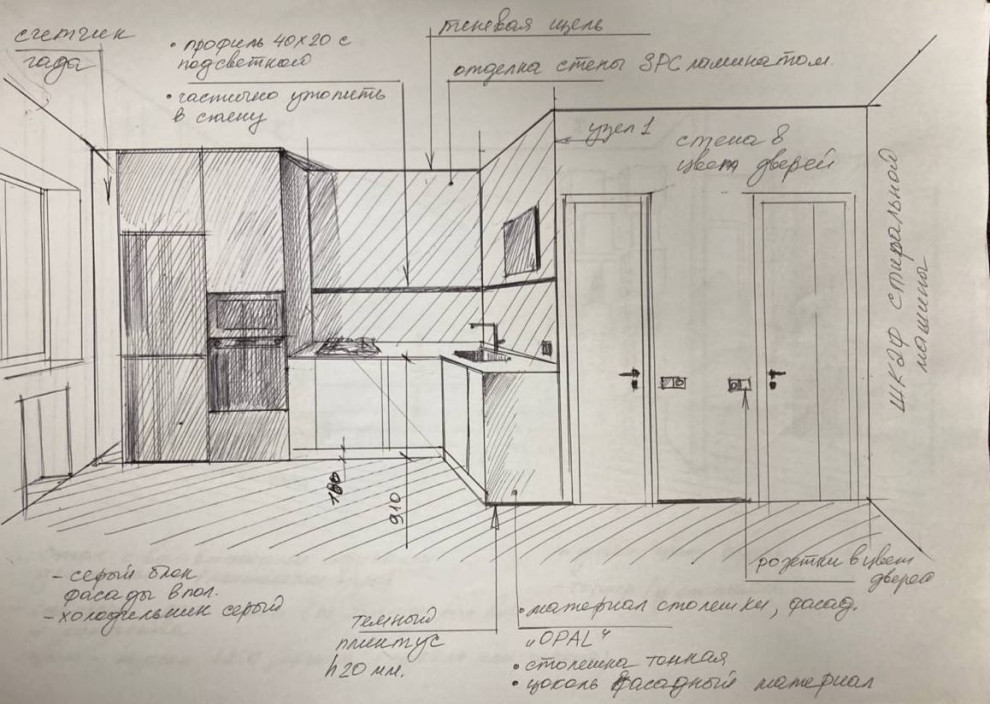 счетчик
гада
• профиль 40х20 с
подсветкой
• частично утопить
в стену
теневая щель
отделка стены SPC ламинатом.
узел 1
стена в
цвет дверей
шкаф стиральной
машины
100
910
розетки в цвет
дверей
- серый блок
фасады в пол.
- холодильник серый
темный
плинтус
h 20 мм.
• материал столешки, фасад.
„OPAL“
• столешка тонкая
• цоколь фасадный материал